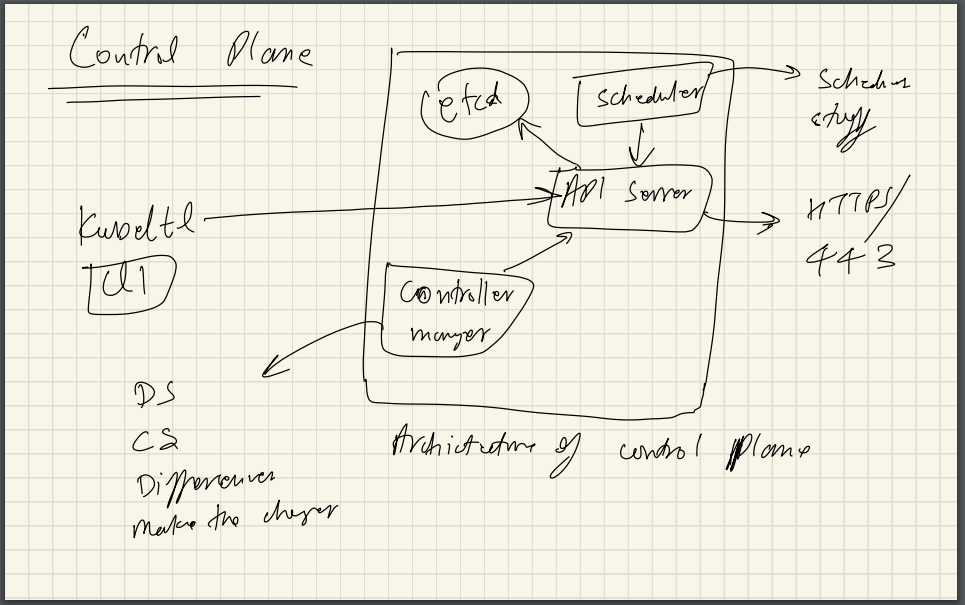 Control Plane
etcd
Scheduler
Schedus
stuff
API Server
Kubectl
HTTPS/
443
cli
Controller
manger
DS
CS
Differences
make the changes
Archicteture of control Plane